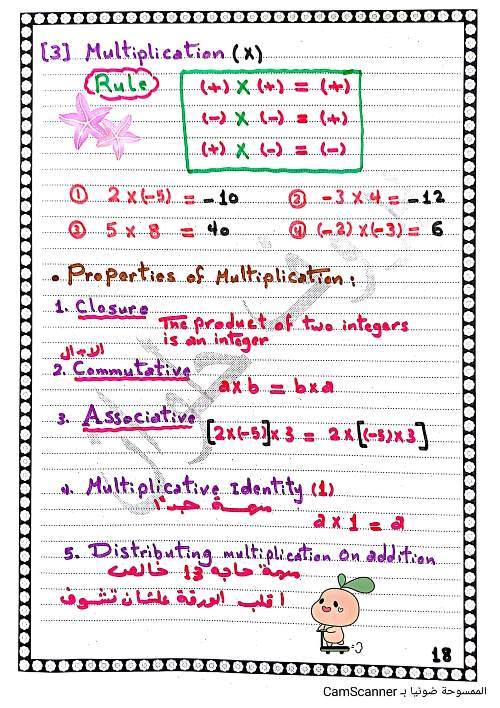 [3] Multiplication (x)
Rule
(+) x (+) = (+)
(-) x (-) = (+)
(+) x (-) = (-)
① 2 x (-5) = -10 ② -3 x 4 = -12
③ 5 x 8 = 40 ④ (-2) x (-3) = 6
• Properties of Multiplication :
1. Closure The product of two integers
is an integer
الابدال
2. Commutative a x b = b x a
3. Associative [2x(-5)] x 3 = 2 x [(-5) x 3]
4. Multiplicative Identity (1)
مهمة جدًا
a x 1 = a
5. Distributing multiplication on addition
مهمة حاجه 13 خالص
اقلب الورقة علشان تشوف
18
الممسوحة ضوئيا بـ CamScanner